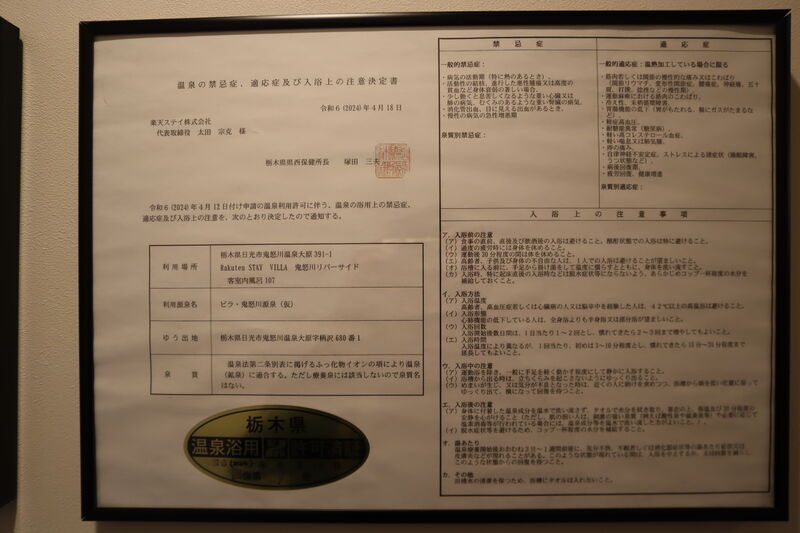 温泉の禁忌症、適応症及び入浴上の注意決定書
令和6(2024)年4月18日
楽天ステイ株式会社
代表取締役 太田 宗克 様
栃木県県西保健所長 塚田 三夫
令和6(2024)年4月12日付け申請の温泉利用許可に伴う、温泉の浴用上の禁忌症、
適応症及び入浴上の注意を、次のとおり決定したので通知する。
利用場所
栃木県日光市鬼怒川温泉大原391-1
Rakuten STAY VILLA 鬼怒川リバーサイド
客室内風呂107
利用源泉名
ビラ・鬼怒川源泉(仮)
ゆう出地
栃木県日光市鬼怒川温泉大原字柄沢680番1
泉質
温泉法第二条別表に掲げるふっ化物イオンの項により温泉
(鉱泉)に適合する。ただし療養泉には該当しないので泉質名
はない。
栃木県
温泉浴用
許可済証
禁忌症
一般的禁忌症:
・病気の活動期(特に熱のあるとき)
・活動性の結核、進行した悪性腫瘍又は高度の
貧血など身体衰弱の著しい場合
・少し動くと息苦しくなるような重い心臓又は
肺の病気、むくみのあるような重い腎臓の病気
・消化管出血、目に見える出血があるとき
・慢性の病気の急性増悪期
泉質別禁忌症:
適応症
一般的適応症:温熱加工している場合に限る
・筋肉若しくは関節の慢性的な痛み又はこわばり
(関節リウマチ、変形性関節症、腰痛症、神経痛、五十
肩、打撲、捻挫などの慢性期)
・運動麻痺における筋肉のこわばり
・冷え性、末梢循環障害
・胃腸機能の低下(胃がもたれる、腸にガスがたまるな
ど)
・軽症高血圧
・耐糖能異常(糖尿病)
・軽い高コレステロール血症
・軽い喘息又は肺気腫
・痔の痛み
・自律神経不安定症、ストレスによる諸症状(睡眠障害、
うつ状態など)
・病後回復期
・疲労回復、健康増進
泉質別適応症:
入浴上の注意事項
ア.入浴前の注意
(ア)食事の直前、直後及び飲酒後の入浴は避けること。酩酊状態での入浴は特に避けること。
(イ)過度の疲労時には身体を休めること。
(ウ)運動後30分程度の間は体を休めること。
(エ)高齢者、子供及び身体の不自由な人は、1人での入浴は避けることが望ましいこと。
(オ)浴槽に入る前に、手足から掛け湯をして温度に慣らすとともに、身体を洗い流すこと。
(カ)入浴時、特に起床直後の入浴時などは脱水症状等にならないよう、あらかじめコップ一杯程度の水分を
補給しておくこと。
イ.入浴方法
(ア)入浴温度
高齢者、高血圧症若しくは心臓病の人又は脳卒中を経験した人は、42℃以上の高温浴は避けること。
(イ)入浴形態
心肺機能の低下している人は、全身浴よりも半身浴又は部分浴が望ましいこと。
(ウ)入浴回数
入浴開始後数日間は、1日当たり1~2回とし、慣れてきたら2~3回まで増やしてもよいこと。
(エ)入浴時間
入浴温度により異なるが、1回当たり、初めは3~10分程度とし、慣れてきたら15分~20分程度まで
延長してもよいこと。
ウ.入浴中の注意
(ア)運動浴を除き、一般に手足を軽く動かす程度にして静かに入浴すること。
(イ)浴槽から出る時は、立ちくらみを起こさないようにゆっくり出ること。
(ウ)めまいが生じ、又は気分が不良となった時は、近くの人に助けを求めつつ、浴槽から頭を低い位置に保って
ゆっくり出て、横になって回復を待つこと。
エ.入浴後の注意
(ア)身体に付着した温泉成分を温水で洗い流さず、タオルで水分を拭き取り、着衣の上、保温及び30分程度の
安静を心がけること
(イ)脱水症状等を避けるため、コップ一杯程度の水分を補給すること。
オ.湯あたり
カ.その他
浴槽水の清潔を保つため、浴槽にタオルは入れないこと。